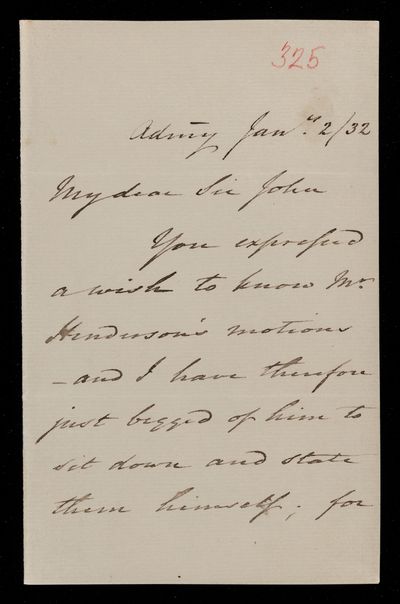 325
Admty Jany. 2/32
My dear Sir John
You expressed
a wish to know Mr.
Henderson's motions
– and I have therefore
just begged of him to
sit down and state
them himself; for